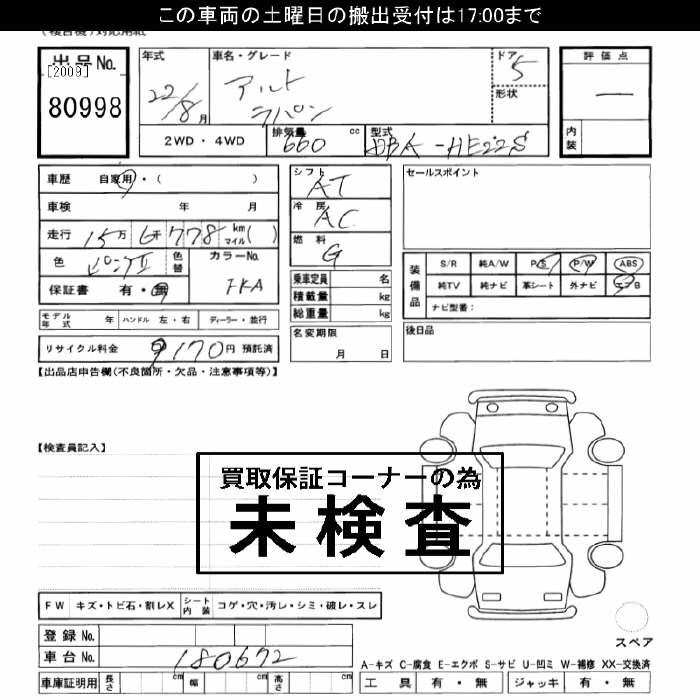 この車両の土曜日の搬出受付は17:00まで
(複合機)対応用紙
出品No. [2009] 80998
年式 22/8月
車名・グレード アルト ラパン
ドア 5
形状
評価点 ―
内装
2WD・4WD
排気量 660 cc
型式 DBA-HE22S
車歴 自家用・( )
車検 年 月
走行 15万6千778 km マイル( )
色 ピンクII 色替
カラーNo. FKA
保証書 有・無
シフト AT
冷房 AC
燃料 G
乗車定員 名
積載量 kg
総重量 kg
名変期限 月 日
セールスポイント
装備品 S/R 純A/W P/S P/W ABS
純TV 純ナビ 革シート 外ナビ エアB
ナビ型番:
後日品
モデル年式 年 ハンドル 左・右 ディーラー・並行
リサイクル料金 9170円 預託済
【出品店申告欄(不良箇所・欠品・注意事項等)】
【検査員記入】
買取保証コーナーの為
未検査
FW キズ・トビ石・割レX シート内装 コゲ・穴・汚レ・シミ・破レ・スレ
登録No.
車台No. 180672
車庫証明用 長さ cm 幅 cm 高さ cm
スペア
A-キズ C-腐食 E-エクボ S-サビ U-凹ミ W-補修 XX-交換済
工具 有・無 ジャッキ 有・無